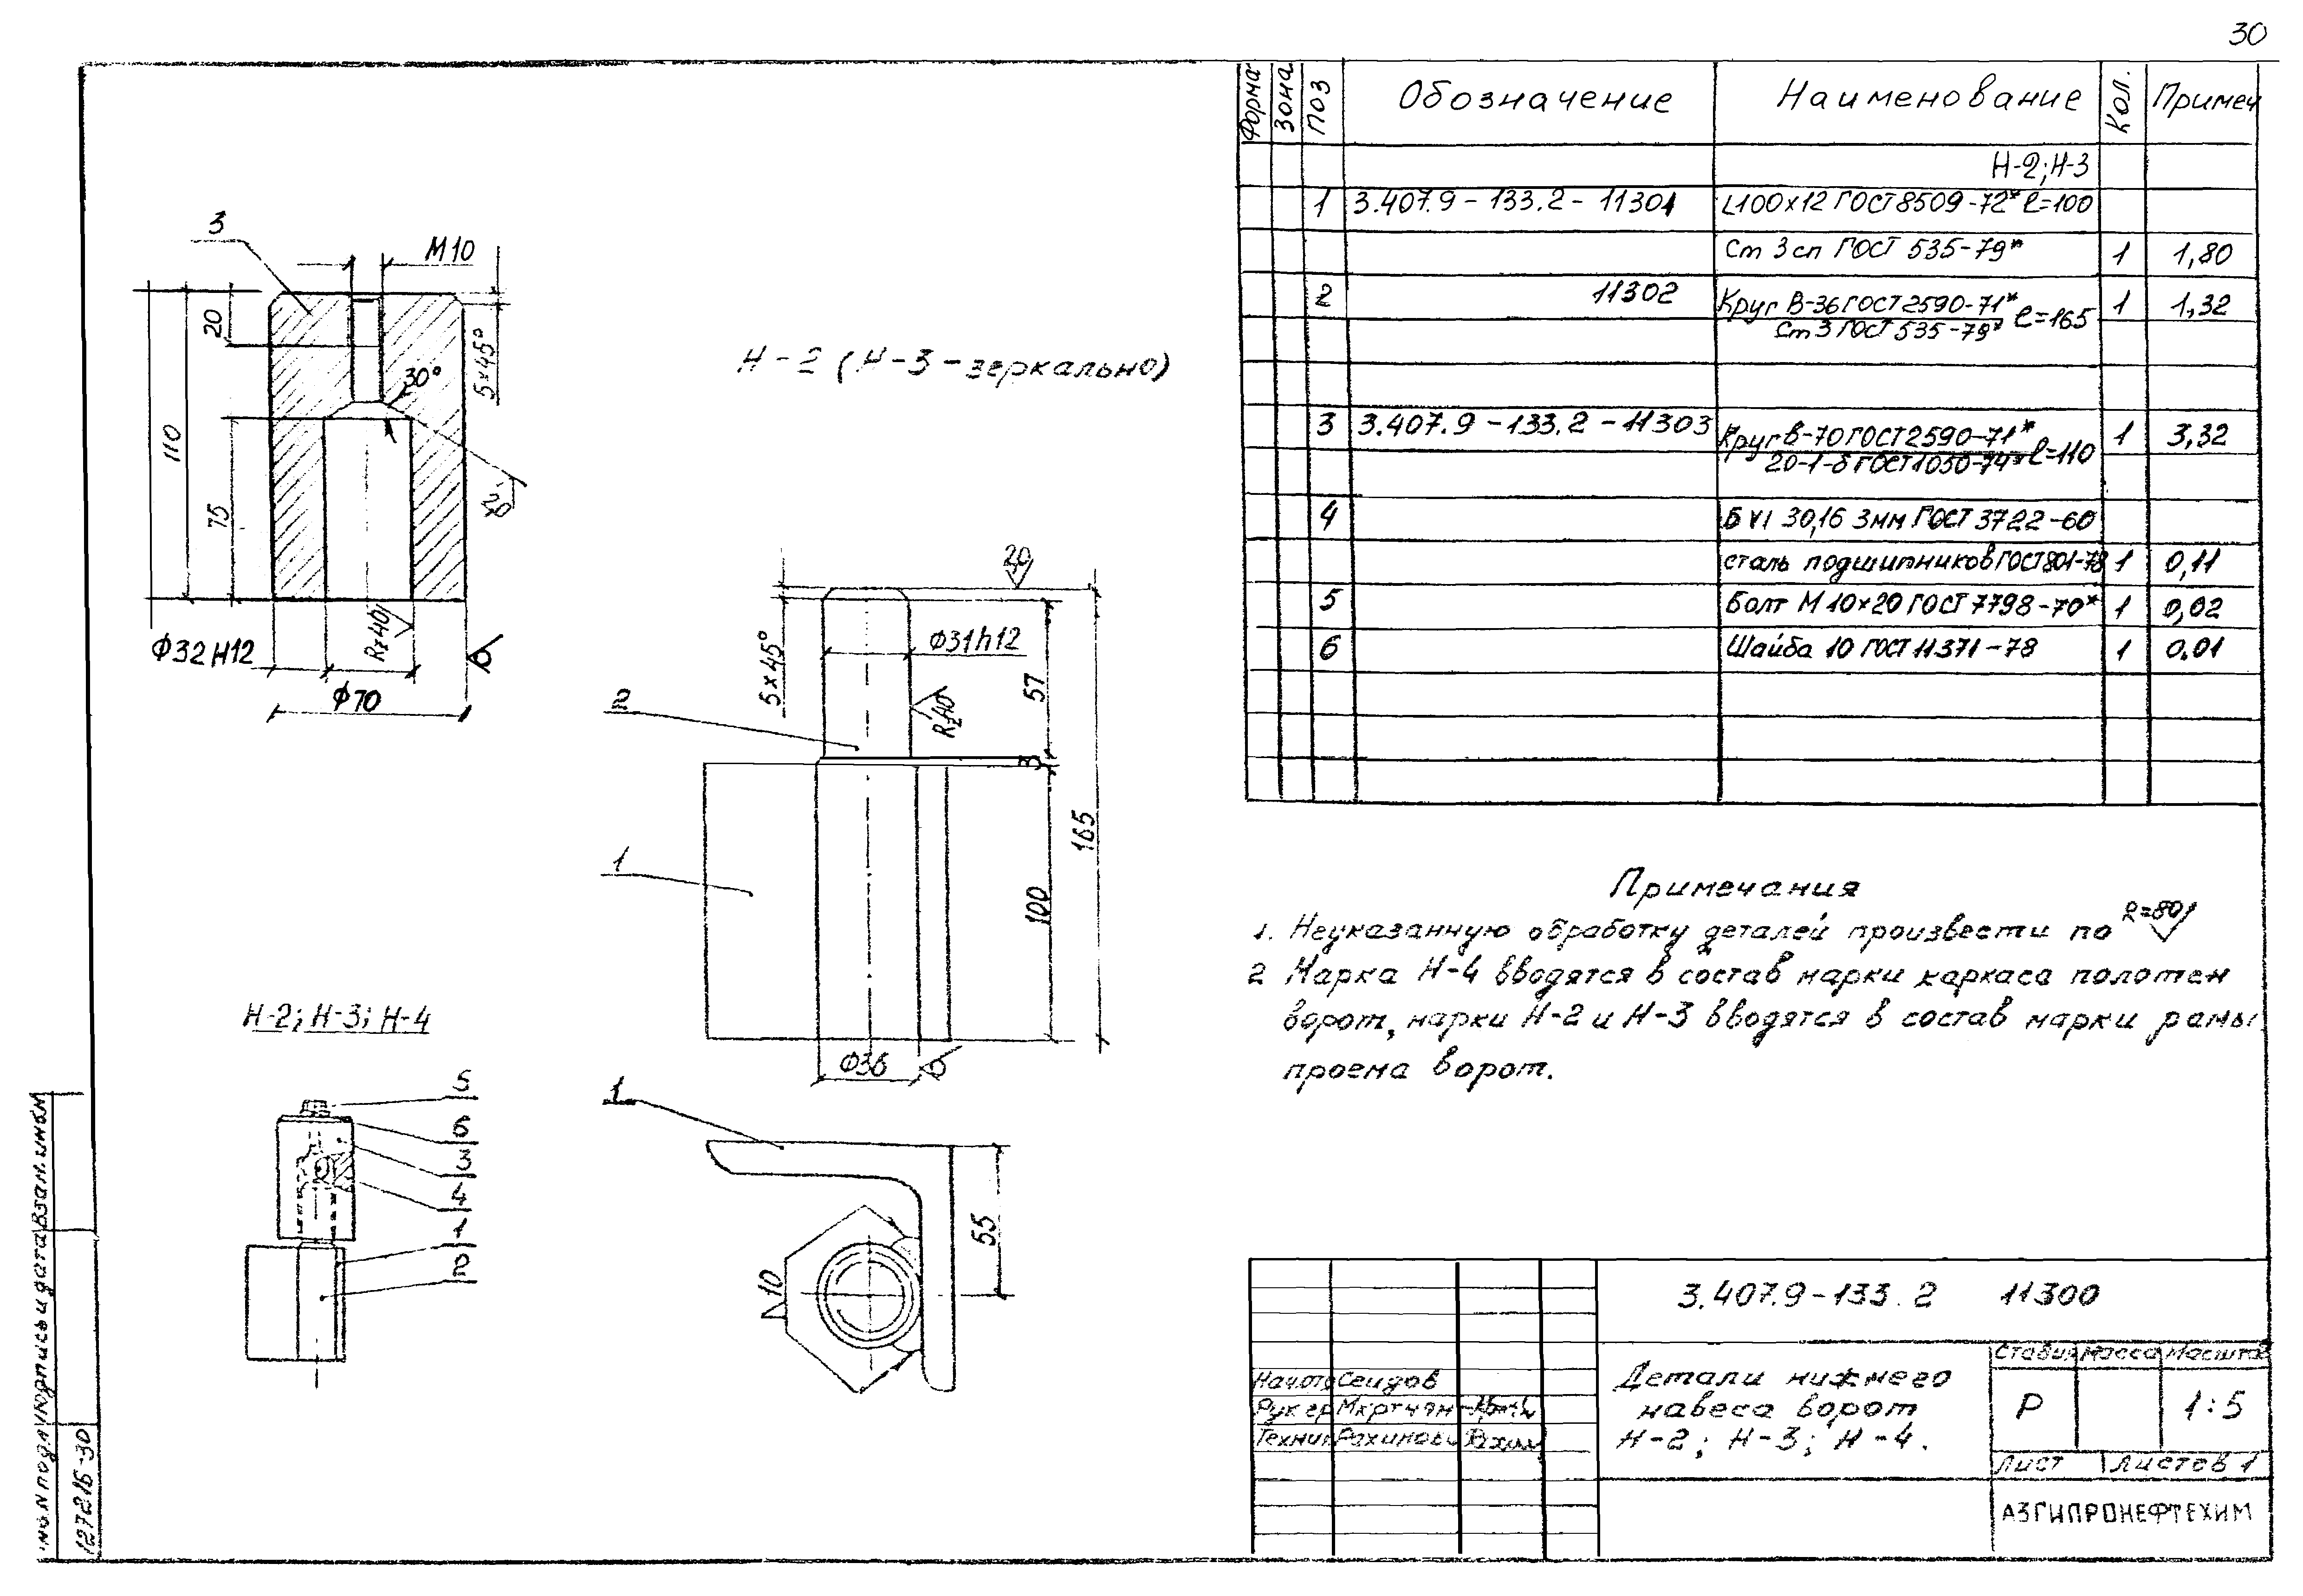 30
Форма Зона Поз Обозначение Наименование Кол. Примеч
Н-2; Н-3
1 3.407.9-133.2-11301 L100×12 ГОСТ 8509-72* ℓ=100
Ст 3 сп ГОСТ 535-79* 1 1,80
2 11302 Круг В-36 ГОСТ 2590-71* ℓ=165 1 1,32
Ст 3 ГОСТ 535-79*
3 3.407.9-133.2-11303 Круг В-70 ГОСТ 2590-71* ℓ=110 1 3,32
20-1-б ГОСТ 1050-74*
4 Б VI 30,16 3мм ГОСТ 3722-60
сталь подшипников ГОСТ 801-78 1 0,11
5 Болт М 10×20 ГОСТ 7798-70* 1 0,02
6 Шайба 10 ГОСТ 11371-78 1 0.01
3
М10
20
5×45°
30°
110
75
20
Rz40
Ф32 Н12
Ф70
Н-2 (Н-3-зеркально)
20
5×45°
Ф31h12
57
2
Rz40
3
165
1
100
Ф36
Н-2; Н-3; Н-4
5
6
3
4
1
2
1
55
10
Примечания
1. Неуказанную обработку деталей произвести по R=80
2 Марка Н-4 вводятся в состав марки каркаса полотен
ворот, марки Н-2 и Н-3 вводятся в состав марки рамы
проема ворот.
3.407.9-133.2 11300
Детали нижнего
навеса ворот
Н-2; Н-3; Н-4.
Стадия Масса Масштаб
Р 1:5
Лист Листов 1
АЗГИПРОНЕФТЕХИМ
Нач.отд Сеидов
Рук гр Мкртчян
Техник
Инв.N подл Подпись и дата Взам. инв.N
12721Б-30